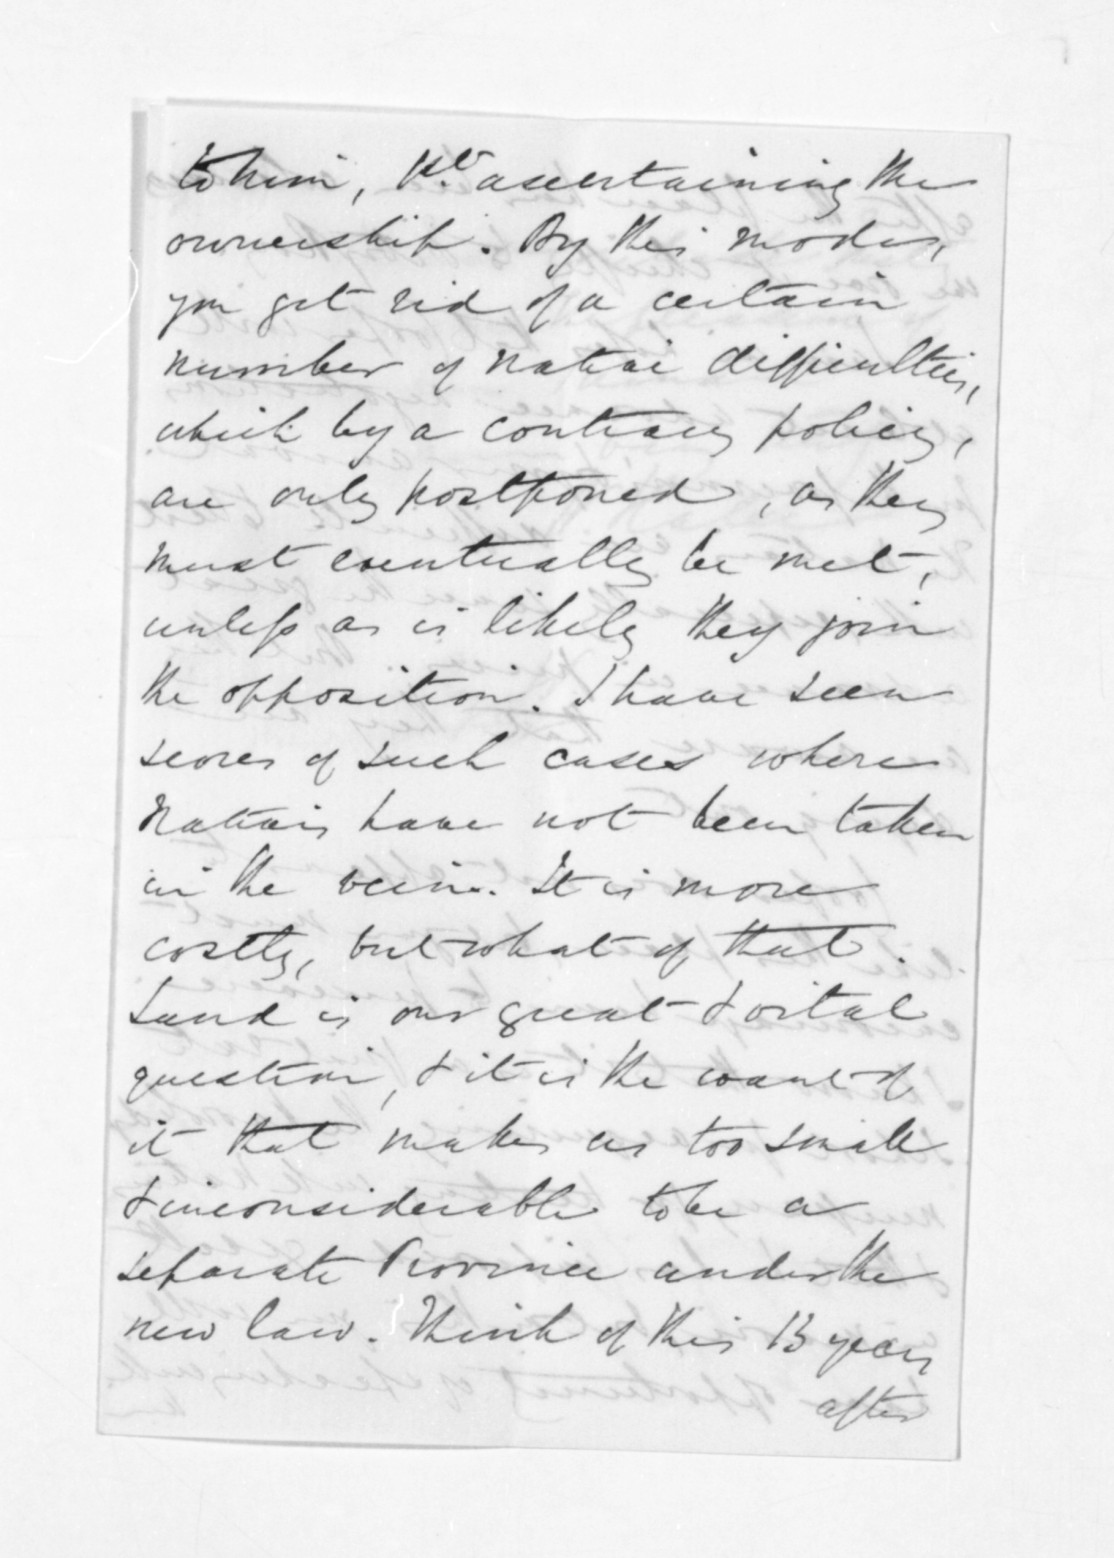 to him, 1st. ascertaining the
ownership. By this modus,
you get rid of a certain
number of native difficulties,
which by a contrary policy,
are only postponed, as they
must eventually be met,
unless as is likely they join
the opposition. I have seen
scores of such cases where
Natives have not been taken
in the vein. It is more
costly, but what of that.
Land is our great & vital
question, & it is the want of
it that makes us too small
& inconsiderable to be a
separate Province under the
new law. Think of this 13 years
after